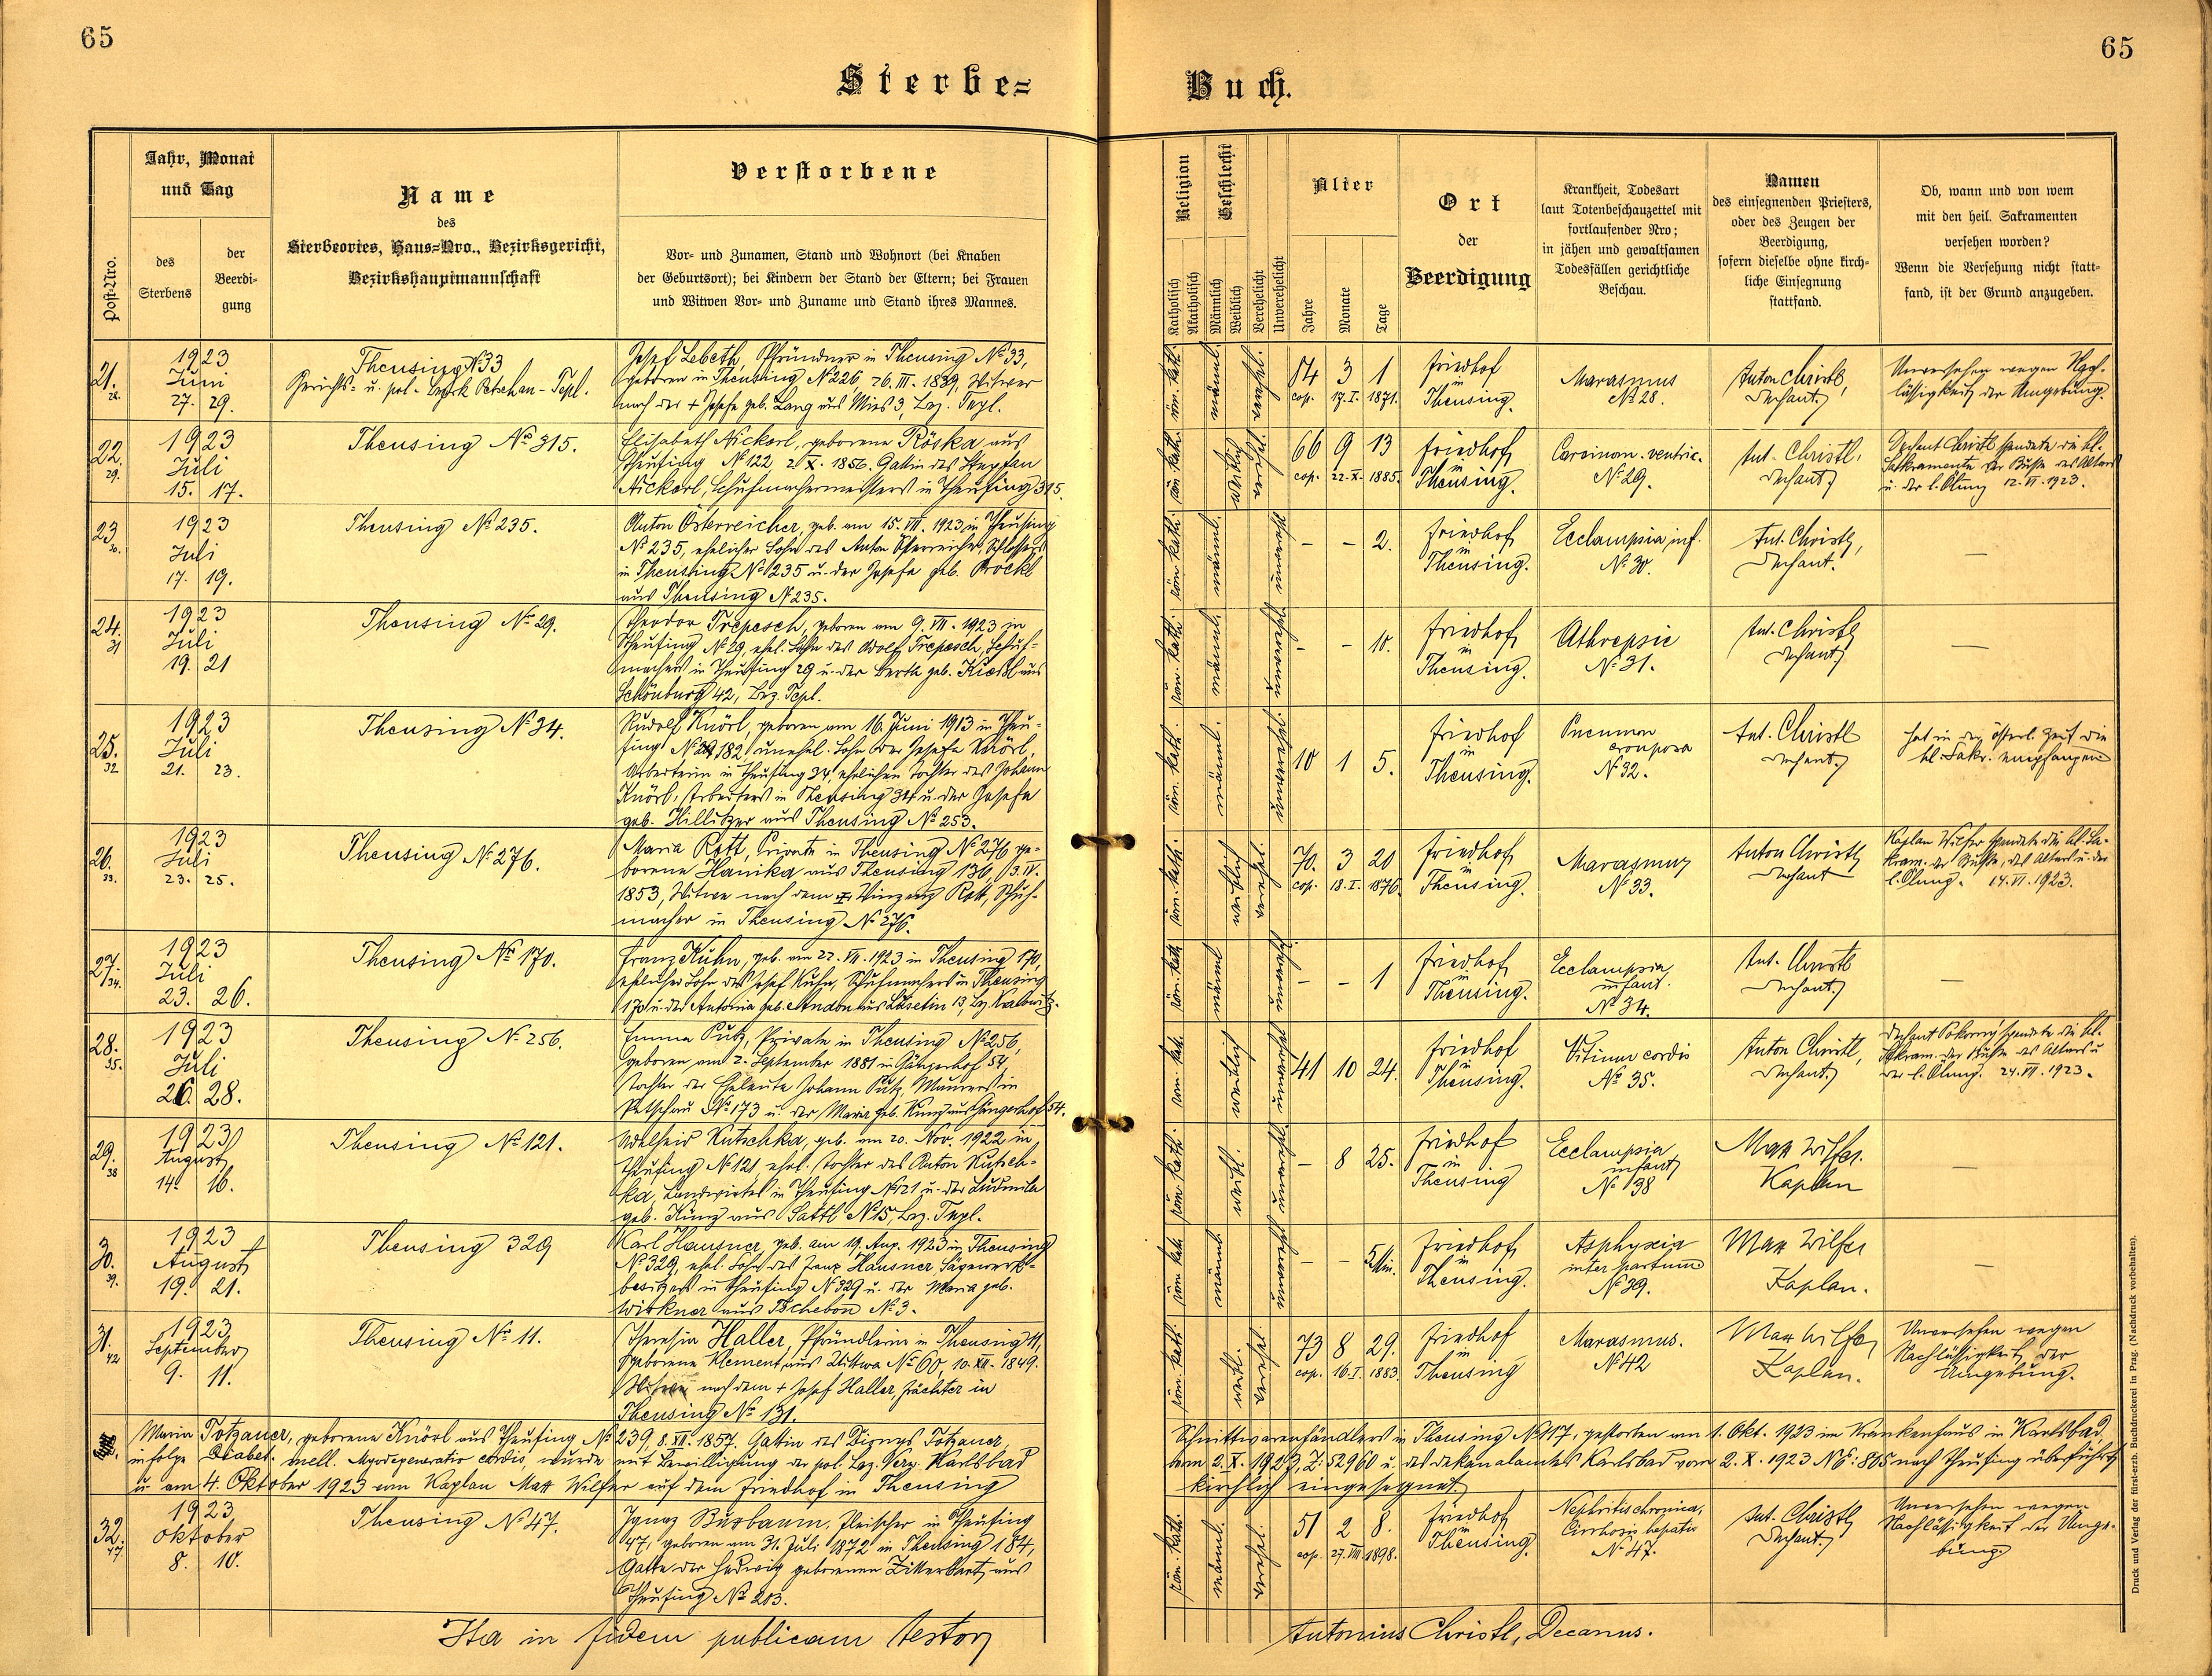 65
65
Sterbe=
Buch.
Post-Nro.
Jahr, Monat
und Tag
des
Sterbens
der
Beerdi-
gung
Name
des
Sterbeortes, Haus=Nro., Bezirksgericht,
Bezirkshauptmannschaft
Verstorbene
Vor- und Zunamen, Stand und Wohnort (bei Knaben
der Geburtsort); bei Kindern der Stand der Eltern; bei Frauen
und Witwen Vor- und Zuname und Stand ihres Mannes.
Religion
Katholisch
Akatholisch
Geschlecht
Männlich
Weiblich
Verehelicht
Unverehelicht
Alter
Jahre
Monate
Tage
Ort
der
Beerdigung
Krankheit, Todesart
laut Totenbeschauzettel mit
fortlaufender Nro;
in jähen und gewaltsamen
Todesfällen gerichtliche
Beschau.
Namen
des einsegnenden Priesters,
oder des Zeugen der
Beerdigung,
sofern dieselbe ohne kirch-
liche Einsegnung
stattfand.
Ob, wann und von wem
mit den heil. Sakramenten
versehen worden?
Wenn die Versehung nicht statt=
fand, ist der Grund anzugeben.
21.
28.
1923
Juni
27. 29.
Theusing No 33
Gerichts- u. pol. Bezirk Petschau-Tepl.
Josef Lebeth, Pfründner in Theusing No 33,
geboren in Theusing No 226, 26. III. 1839, Witwer
nach der + Josefa geb. Lang aus Mies 3, Bez. Tepl.
röm. kath.
männl.
verehel.
84 3 1
cop. 17. I. 1871.
Friedhof
in
Theusing.
Marasmus
No 28.
Anton Christl,
Dechant.
Unversehen wegen Nach-
lässigkeit der Umgebung.
22.
29.
1923
Juli
15. 17.
Theusing No 315.
Elisabeth Nickerl, geborene Röska aus
Theusing No 122, 2. X. 1856. Gattin des Stephan
Nickerl, Schuhmachermeisters in Theusing 315.
röm. kath.
weiblich
verehel.
66 9 13
cop. 22. X. 1885.
Friedhof
in
Theusing.
Carcinom. ventric.
No 29.
Ant. Christl,
Dechant.
Dechant Christl spendete die hl.
Sakramente der Buße, des Altars
u. der l. Ölung 12. VI. 1923.
23.
30.
1923
Juli
17. 19.
Theusing No 235.
Anton Österreicher, geb. am 15. VII. 1923 in Theusing
No 235, ehelicher Sohn des Anton Österreicher, Schlossers
in Theusing No 235 u. der Josefa geb. Bröckl
aus Theusing No 235.
röm. kath.
männl.
unverehel.
– – 2.
Friedhof
in
Theusing.
Ecclampsia inf.
No 30.
Ant. Christl,
Dechant.
—
24.
31
1923
Juli
19. 21
Theusing No 29.
Theodor Trepesch, geboren am 9. VII. 1923 in
Theusing No 29, ehel. Sohn des Adolf Trepesch, Schuh-
machers in Theusing 29 u. der Berta geb. Kiesl aus
Schönburg 42, Bez. Tepl.
röm. kath.
männl.
unverehel.
– – 10.
Friedhof
in
Theusing.
Athrepsie
No 31.
Ant. Christl
Dechant.
—
25.
32
1923
Juli
21. 23.
Theusing No 34.
Rudolf Knörl, geboren am 16. Juni 1913 in Theu-
sing No 182, unehel. Sohn der Josefa Knörl,
Arbeiterin in Theusing 34, ehelichen Tochter des Johann
Knörl, Arbeiters in Theusing 34 u. der Josefa
geb. Hillitzer aus Theusing No 253.
röm. kath.
männl.
unverehel.
10 1 5.
Friedhof
in
Theusing.
Pneumon
crouposa
No 32.
Ant. Christl
Dechant.
hat in der österl. Zeit die
hl. Sakr. empfangen
26.
33.
1923
Juli
23. 25.
Theusing No 276.
Maria Rott, Private in Theusing No 276 ge-
borene Hanika aus Theusing 136, 3. IV.
1853, Witwe nach dem + Vinzenz Rott, Schuh-
macher in Theusing No 276.
röm. kath.
weiblich
verehel.
70. 3 20
cop. 18. I. 1876.
Friedhof
in
Theusing.
Marasmus
No 33.
Anton Christl
Dechant
Kaplan Wilfer spendete die hl. Sa-
kram. der Buße, des Altars u. der
l. Ölung. 14. VI. 1923.
27.
34.
1923
Juli
23. 26.
Theusing No 170.
Franz Kuhn, geb. am 22. VII. 1923 in Theusing 170,
ehelicher Sohn des Josef Kuhn, Schuhmachers in Theusing
170 u. der Antonia geb. Andon aus Lusetin 13, Bez. Kralowitz.
röm. kath
männl
unverehel.
– – 1
Friedhof
in
Theusing.
Ecclampsia
infant.
No 34.
Ant. Christl
Dechant.
—
28.
35.
1923
Juli
26. 28.
Theusing No 256.
Emma Putz, Private in Theusing No 256,
geboren am 2. September 1881 in Gängerhof 54,
Tochter der Eheleute Johann Putz, Maurers in
Petschau No 173 u. der Maria geb. Kunz aus Gängerhof 54.
röm. kath.
weiblich
unverehel.
41 10 24.
Friedhof
in
Theusing.
Vitium cordis
No 35.
Anton Christl,
Dechant.
Dechant Pokorny spendete die hl.
Sakram. der Buße des Altars u
der l. Ölung. 24. VII. 1923.
29.
38
1923
August
14. 16.
Theusing No 121.
Adelheid Kutschka, geb. am 20. Nov. 1922 in
Theusing No 121, ehel. Tochter des Anton Kutsch-
ka, Landwirtes in Theusing No 121 u. der Ludmila
geb. Künz aus Sattl No 15, Bez. Tepl.
röm. kath.
weibl.
unverehel.
– 8 25.
Friedhof
in
Theusing
Ecclampsia
infant
No 38
Max Wilfer.
Kaplan
—
30.
39.
1923
August
19. 21.
Theusing 329
Karl Hausner, geb. am 19. Aug. 1923 in Theusing
No 329, ehel. Sohn des Franz Hausner, Sägewerk-
besitzers in Theusing No 329 u. der Maria geb.
Wirkner aus Tschebon No 3.
röm. kath
männl.
unverehel.
– – 5 Min.
Friedhof
in
Theusing.
Asphyxia
inter partum
No 39.
Max Wilfer
Kaplan.
—
31.
42
1923
September
9. 11.
Theusing No 11.
Theresia Haller, Pfründlerin in Theusing 11,
geborene Klement aus Uittwa No 60, 10. XII. 1849.
Witwe nach dem + Josef Haller, Pächter in
Theusing No 131.
röm. kath.
weibl.
verehel.
73 8 29.
cop. 16. I. 1883.
Friedhof
in
Theusing
Marasmus.
No 42
Max Wilfer
Kaplan.
Unversehen wegen
Nachlässigkeit der
Umgebung.
Maria Totzauer, geborene Knörl aus Theusing No 239, 8. XII. 1857. Gattin des Dionys Totzauer, Schnittwarenhändlers in Theusing No 117, gestorben am 1. Okt. 1923 im Krankenhaus in Karlsbad
infolge Diabet. mell. Myodegeneratio cordis, wurde mit Bewilligung der pol. Bez. Verw. Karlsbad vom 2. X. 1923, Z: 52960 u. des Dekanalamtes Karlsbad vom 2. X. 1923 NE: 865 nach Theusing überführt
u. am 4. Oktober 1923 vom Kaplan Max Wilfer auf dem Friedhof in Theusing kirchlich eingesegnet.
32.
47.
1923
Oktober
8. 10.
Theusing No 47.
Ignaz Buxbaum, Fleischer in Theusing
47, geboren am 31. Juli 1872 in Theusing 184,
Gatte der Hedwig geborenen Zitterbart aus
Theusing No 203.
röm. kath.
männl.
verehel.
51 2 8.
cop. 27. VIII 1898.
Friedhof
in
Theusing.
Nephritis chronica,
Cirrhosis hepatis
No 47.
Ant. Christl
Dechant.
Unversehen wegen
Nachlässigkeit der Umge-
bung.
Ita in fidem publicam testor
Antonius Christl, Decanus.
Druck und Verlag der fürst-erzb. Buchdruckerei in Prag. (Nachdruck vorbehalten).